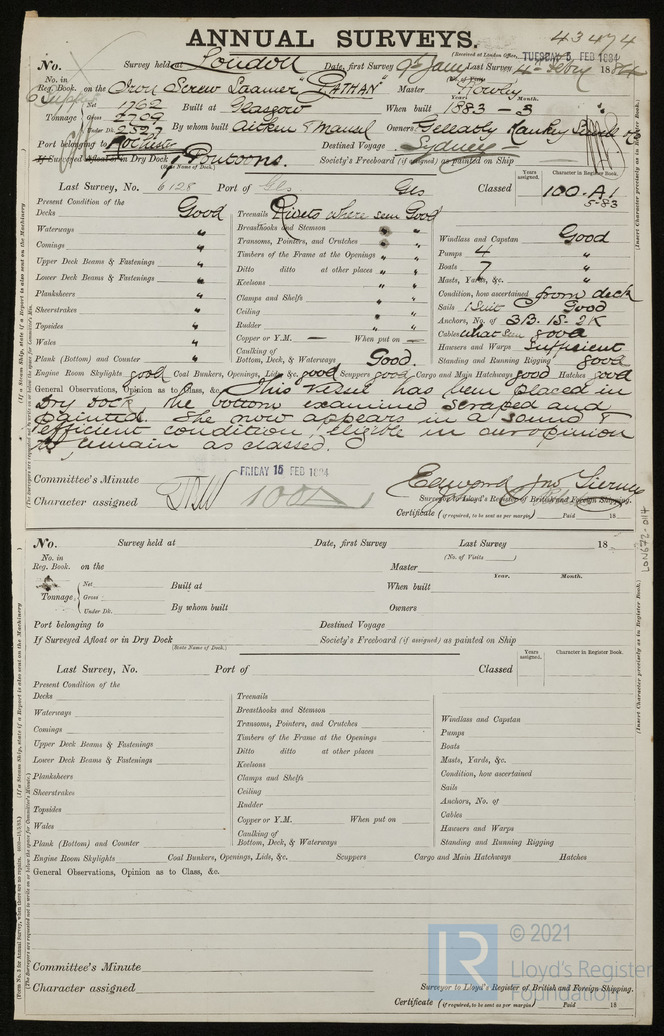 43474
ANNUAL SURVEYS.
(Received at London Office, TUESDAY 5 FEB 1884
No. Survey held at London Date, first Survey 9th Jany Last Survey 4th Febry 1884
No. in Reg. Book. on the Iron Screw Steamer "Gatman" Master Howley
(No. of Visits)
6 Supp
Tonnage Net 1762 Built at Glasgow When built 1883 - 5
Year. Month.
Gross 2709
Under Dk. 2527 By whom built Aitken & Mansel Owners Gellatly Hankey Sewell & Co
Port belonging to Rochester Destined Voyage Sydney
If Surveyed Afloat or in Dry Dock Society's Freeboard (if assigned) as painted on Ship
(State Name of Dock.)
Last Survey, No. 6128 Port of Gls Gls Classed 100.A1
Years assigned. Character in Register Book.
5-83
Present Condition of the
Decks Good
Waterways "
Comings "
Upper Deck Beams & Fastenings "
Lower Deck Beams & Fastenings "
Planksheers "
Sheerstrakes "
Topsides "
Wales "
Plank (Bottom) and Counter "
Treenails Rivets where seen Good
Breasthooks and Stemson "
Transoms, Pointers, and Crutches "
Timbers of the Frame at the Openings "
Ditto ditto at other places "
Keelsons "
Clamps and Shelfs "
Ceiling "
Rudder "
Copper or Y.M. — When put on —
Caulking of Bottom, Deck, & Waterways Good.
Windlass and Capstan Good
Pumps 4 "
Boats 7 "
Masts, Yards, &c. "
Condition, how ascertained from deck
Sails 1 Suit Good
Anchors, No. of 3B. 1S. 2K
Cables what seen good
Hawsers and Warps Sufficient
Standing and Running Rigging good
Engine Room Skylights good Coal Bunkers, Openings, Lids, &c. good Scuppers good Cargo and Main Hatchways good Hatches good
General Observations, Opinion as to Class, &c. This vessel has been placed in
dry dock the bottom examined scraped and
painted. She now appears in a sound &
efficient condition, eligible in our opinion
to remain as classed.
Committee's Minute FRIDAY 15 FEB 1884
Character assigned 100A1
Surveyor to Lloyd's Register of British and Foreign Shipping.
Certificate (if required, to be sent as per margin) Paid 18
LON672-0117
No. Survey held at Date, first Survey Last Survey 18
No. in Reg. Book. on the Master
(No. of Visits)
Year. Month.
Tonnage Net Built at When built
Gross
Under Dk. By whom built Owners
Port belonging to Destined Voyage
If Surveyed Afloat or in Dry Dock Society's Freeboard (if assigned) as painted on Ship
(State Name of Dock.)
Last Survey, No. Port of Classed
Years assigned. Character in Register Book.
Present Condition of the
Decks
Waterways
Comings
Upper Deck Beams & Fastenings
Lower Deck Beams & Fastenings
Planksheers
Sheerstrakes
Topsides
Wales
Plank (Bottom) and Counter
Treenails
Breasthooks and Stemson
Transoms, Pointers, and Crutches
Timbers of the Frame at the Openings
Ditto ditto at other places
Keelsons
Clamps and Shelfs
Ceiling
Rudder
Copper or Y.M. When put on
Caulking of Bottom, Deck, & Waterways
Windlass and Capstan
Pumps
Boats
Masts, Yards, &c.
Condition, how ascertained
Sails
Anchors, No. of
Cables
Hawsers and Warps
Standing and Running Rigging
Engine Room Skylights Coal Bunkers, Openings, Lids, &c. Scuppers Cargo and Main Hatchways Hatches
General Observations, Opinion as to Class, &c.
Committee's Minute
Character assigned
Surveyor to Lloyd's Register of British and Foreign Shipping.
Certificate (if required, to be sent as per margin) Paid 18
LR © 2021
Lloyd's Register
Foundation